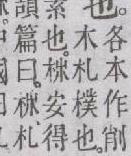 也。
各本作削
木札樸也
素也。柹安得
頡篇曰。柹札